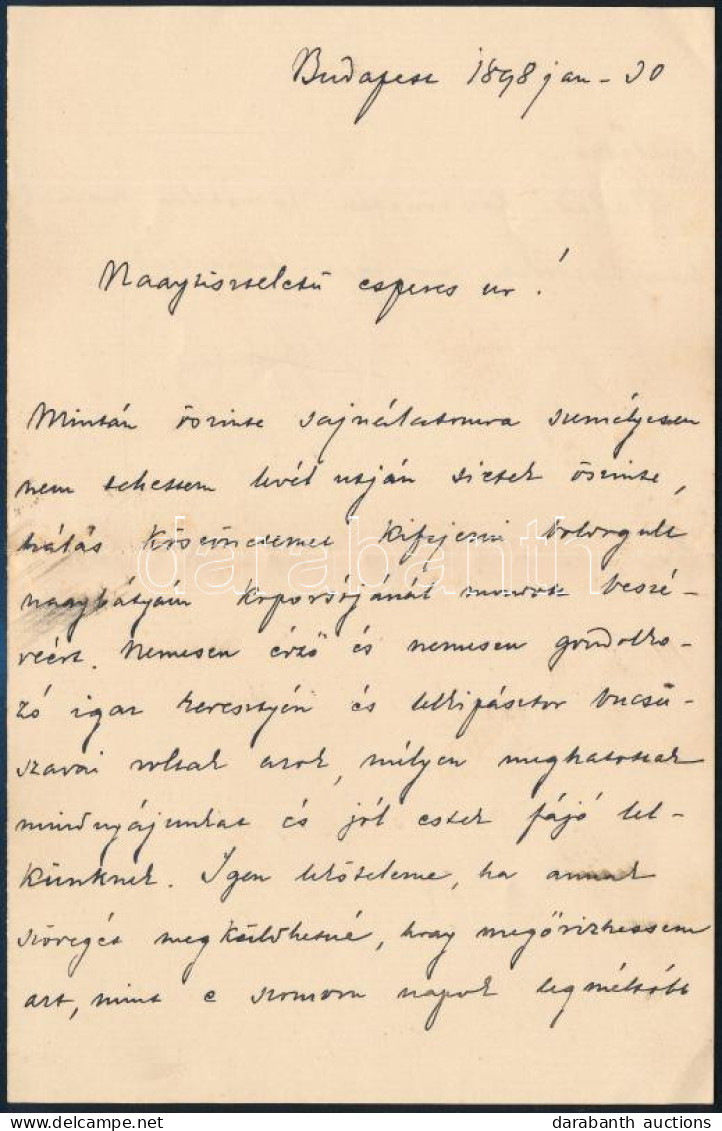 Budapest 1898 jan - 30
Nagytiszteletü esperes ur!
Miután őszinte sajnálatomra személyesen
nem tehettem levél utján sietek őszinte,
hálás köszönetemet kifejezni boldogult
nagybátyám koporsójánál mondott beszé-
déért. Nemesen érző és nemesen gondolko-
zó igaz keresztyén és lelkipásztor bucsu-
szavai voltak azok, mélyen meghatottak
mindnyájunkat és jól estek fájó lel-
künknek. Igen lekötelezne, ha annak
szövegét megküldhetné, hogy megőrizhessem
azt, mint e szomoru napok legméltóbb
darabanth
darabanth auctions